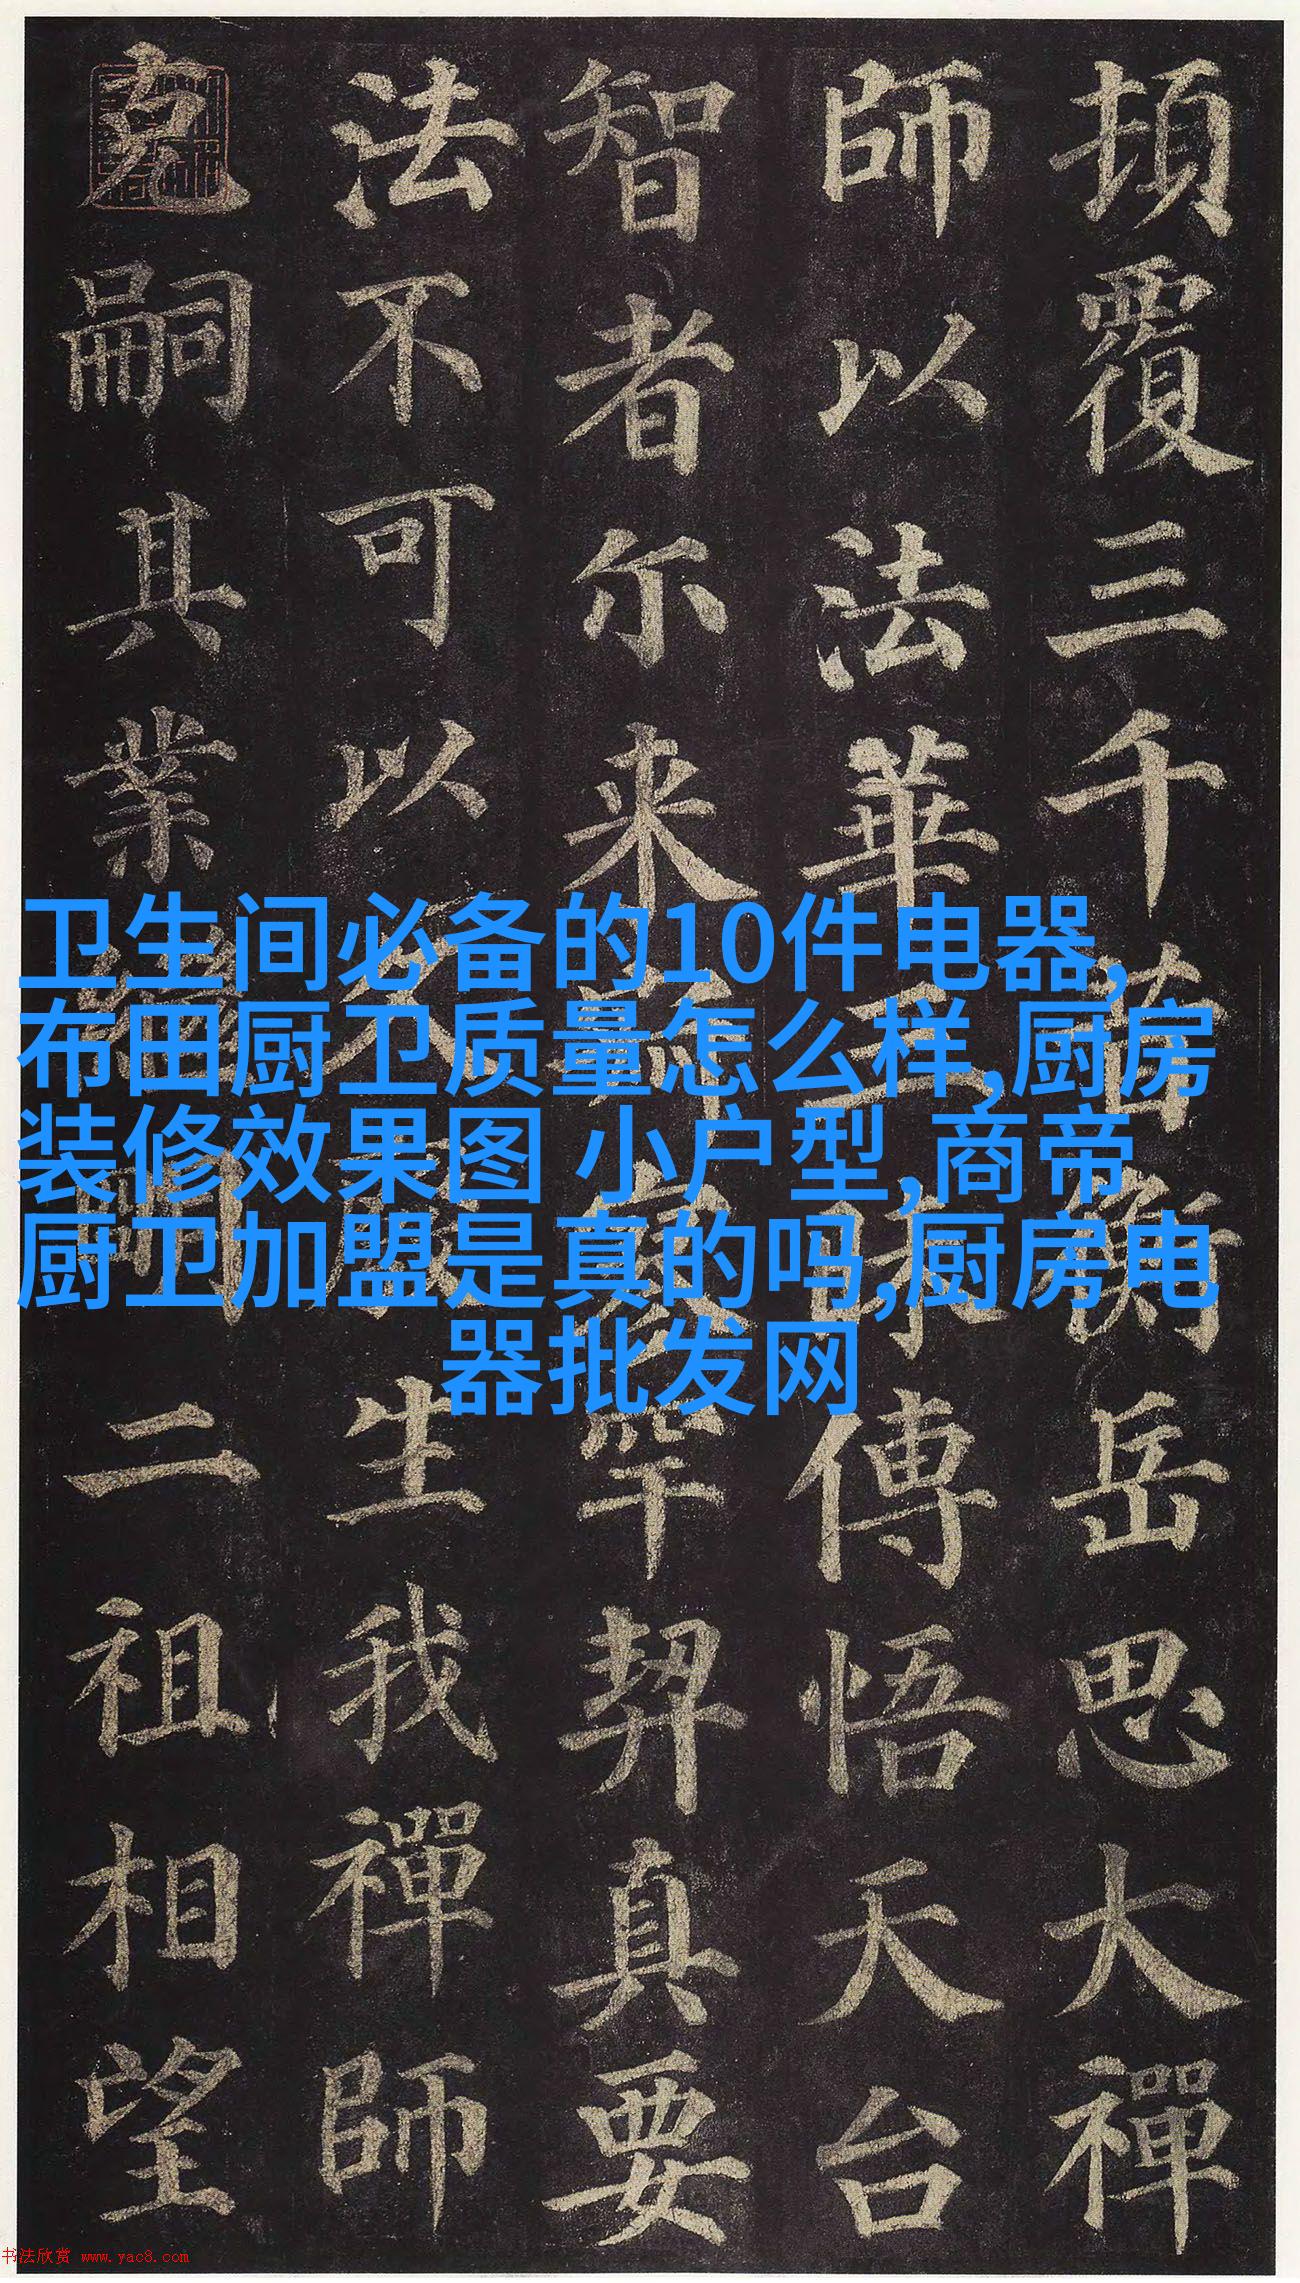 頂覆三千昔衡岳思大禪
師以法華三昧傳悟天台
智者尔来罕契真要
法不可以久廢生我禪師
克嗣其業繼明二祖相望
卫生间必备的10件电器,
布田厨卫质量怎么样,厨房
装修效果图 小户型,商帝
厨卫加盟是真的吗,厨房电
器批发网
书法欣赏 www.yac8.com